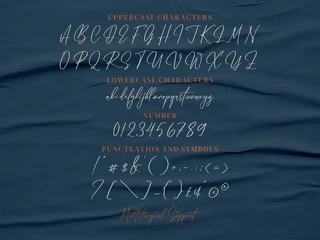 UPPERCASE CHARACTERS
ABCDEFGHIJKLMN
OPQRSTUVWXYZ
LOWERCASE CHARACTERS
abcdefghijklmnopqrstuvwxyz
NUMBER
0123456789
PUNCTUATION AND SYMBOLS
!"#$&'()+,-.:;<=>
?[\]_{}£¥°©®
Multilingual Support